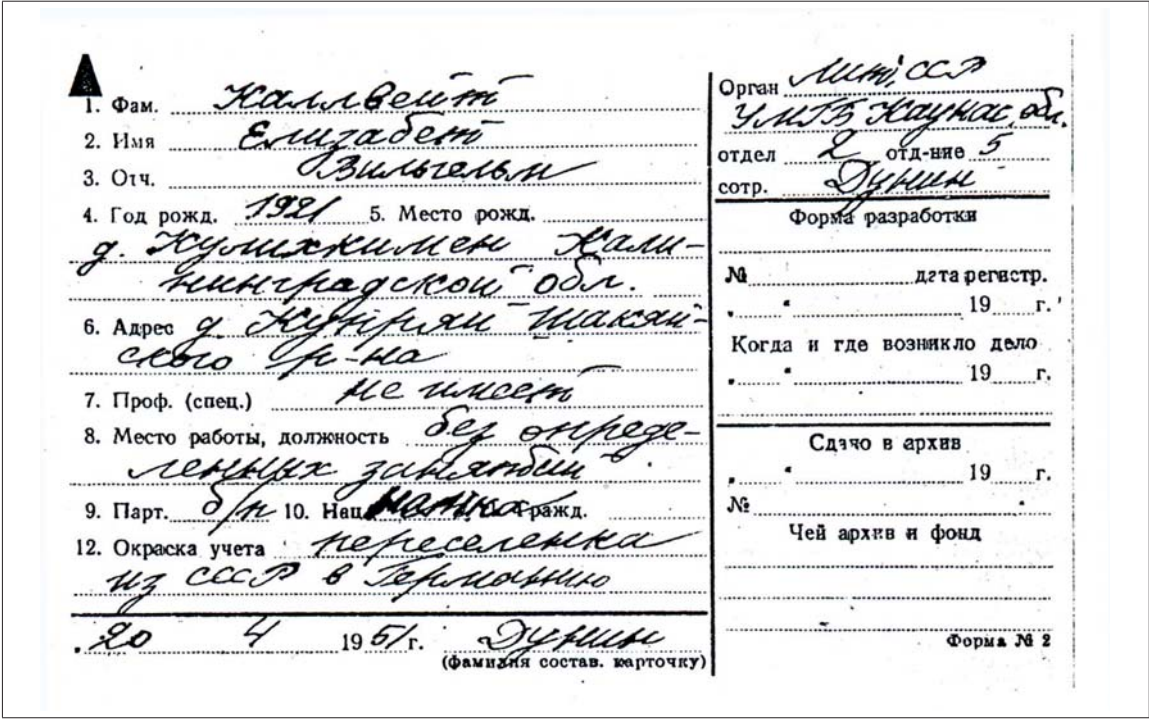 1. Фам. Каллвейт
2. Имя Елизабет
3. Отч. Вильгельм
4. Год рожд. 1921 5. Место рожд.
д. Кулихкимен Кали-
нинградской обл.
6. Адрес д. Кукряи Шакяй-
ского р-на
7. Проф. (спец.) не имеет
8. Место работы, должность без опреде-
ленных занятий
9. Парт. б/п 10. Нац. немка Гражд.
12. Окраска учета переселенка
из СССР в Германию
20 4 1951 г. Дунин
(фамилия состав. карточку)
Орган Лит. ССР
УМГБ Каунас. обл.
отдел 2 отд-ние 5
сотр. Дунин
Форма разработки
№ дата регистр.
„ “ 19 г.
Когда и где возникло дело
„ “ 19 г.
Сдано в архив
„ “ 19 г.
№
Чей архив и фонд
Форма № 2